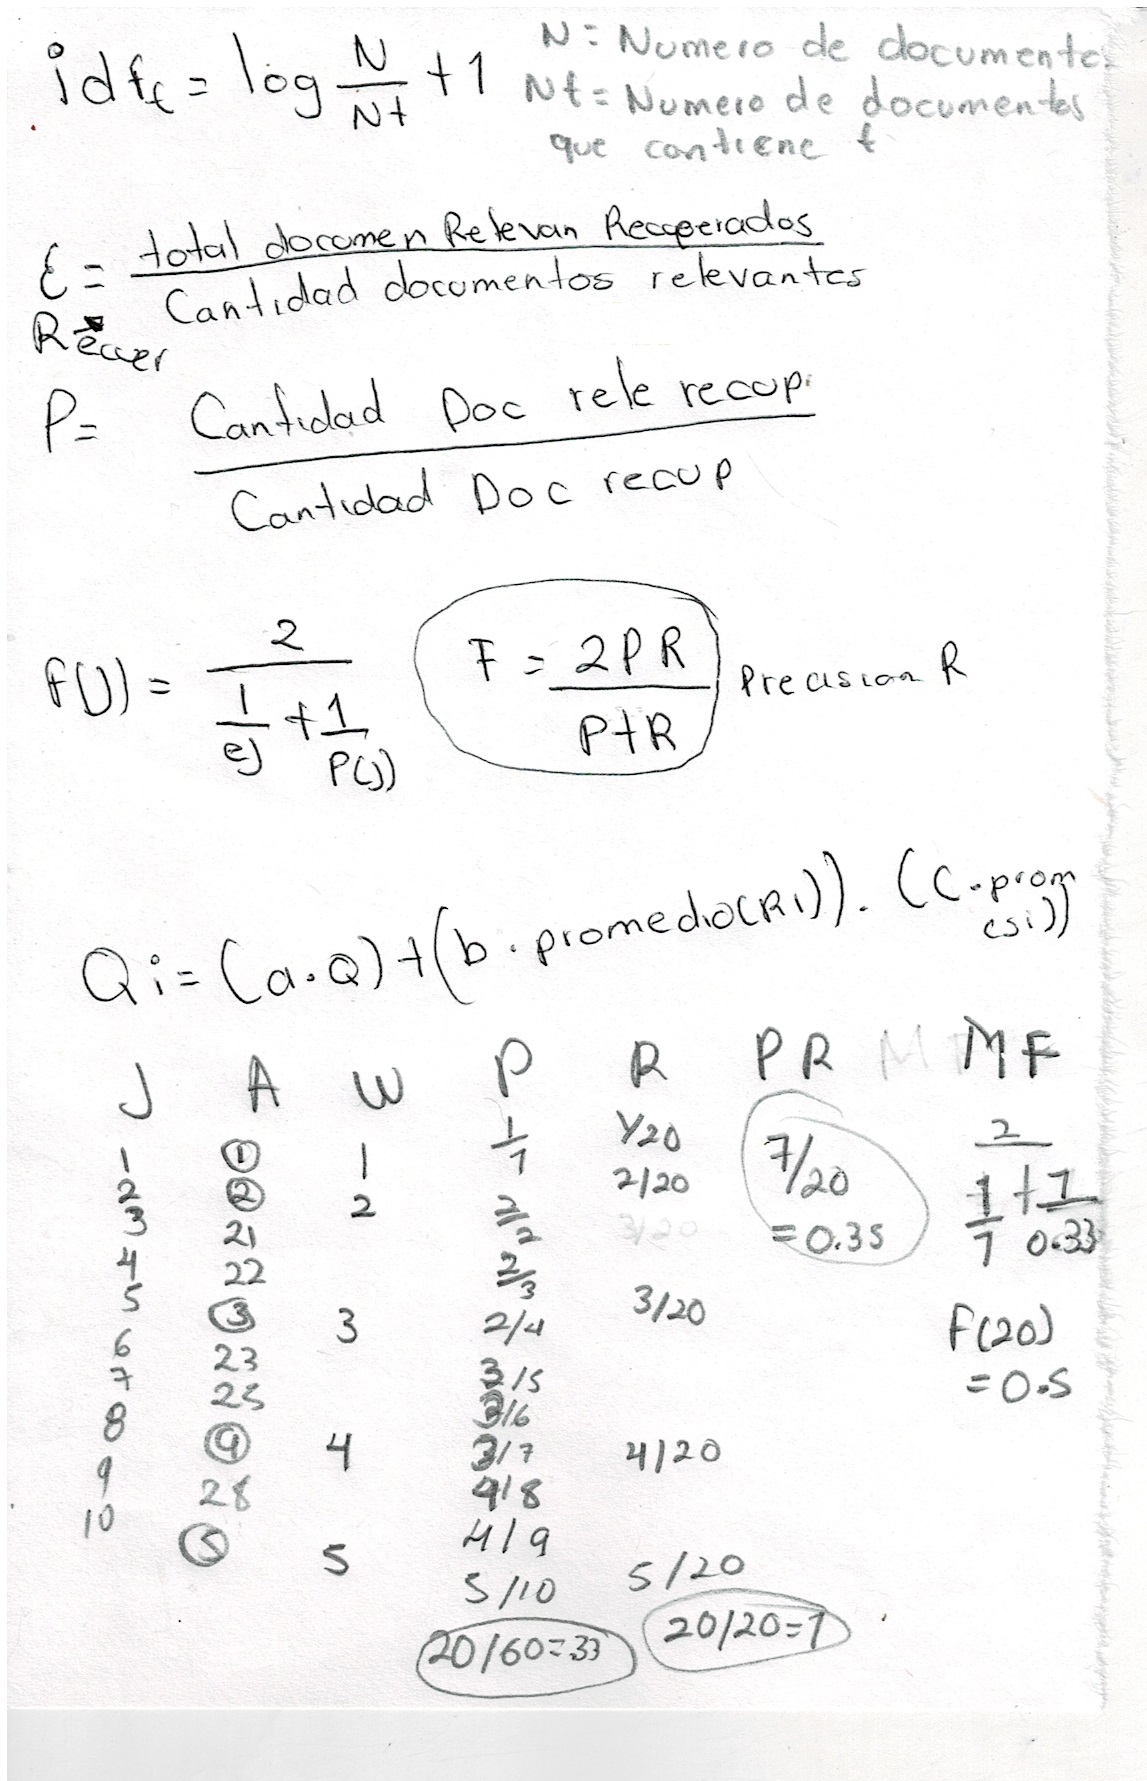 idft = log N/Nt + 1
N = Numero de documentos
Nt = Numero de documentos
que contiene t
E = total documen Relevan Recuperados / Cantidad documentos relevantes
Recuer
P = Cantidad Doc rele recup. / Cantidad Doc recup
f(J) = 2 / (1/ej + 1/P(j))
F = 2PR / P+R
Precision R
Qi = (a.Q) + (b . promedio(Ri)) . (C . prom
(si))
J A W P R PR MF
1 ① 1 1/1 1/20
2 ② 2 2/2 2/20
3 21 2/3 3/20
4 22 2/4
5 ③ 3 3/5 3/20
6 23 3/6
7 25 3/7
8 ④ 4 4/8 4/20
9 28 4/9
10 ⑤ 5 5/10 5/20
20/60=33 20/20=1
7/20
= 0.35
2 / (1/1 + 1/0.33)
F(20)
= 0.5